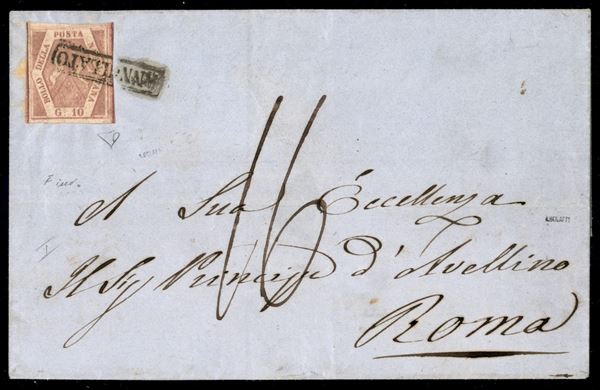 BOLLO DELLA POSTA NAPOLETANA
G. 10
ANNULLATO
16
A Sua Eccellenza
Il Sig Principe d'Avellino
Roma